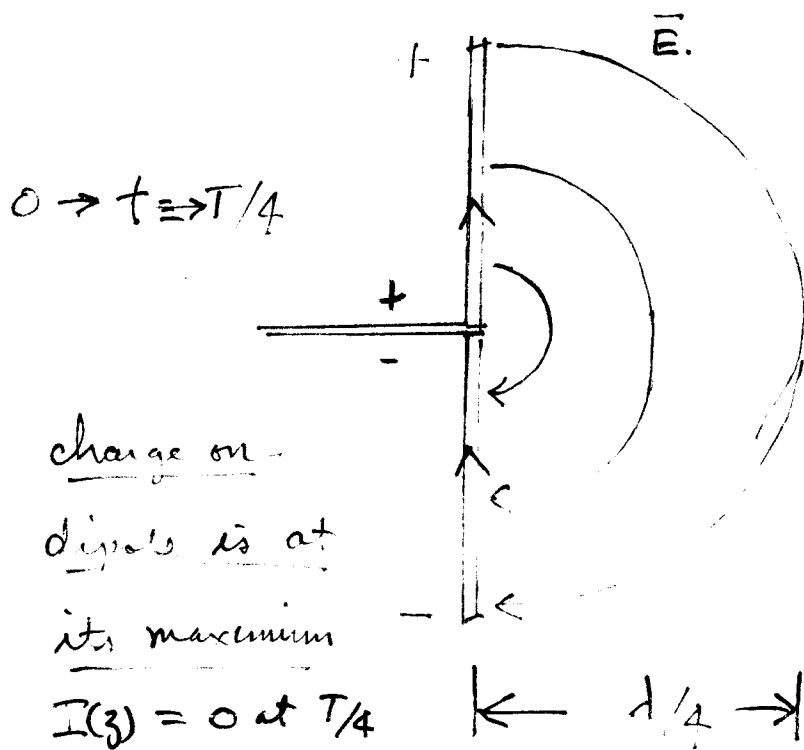 +
E.
0 → t ⇒ T/4
+
-
charge on
dipole is at
its maximum
-
I(z) = 0 at T/4
λ/4